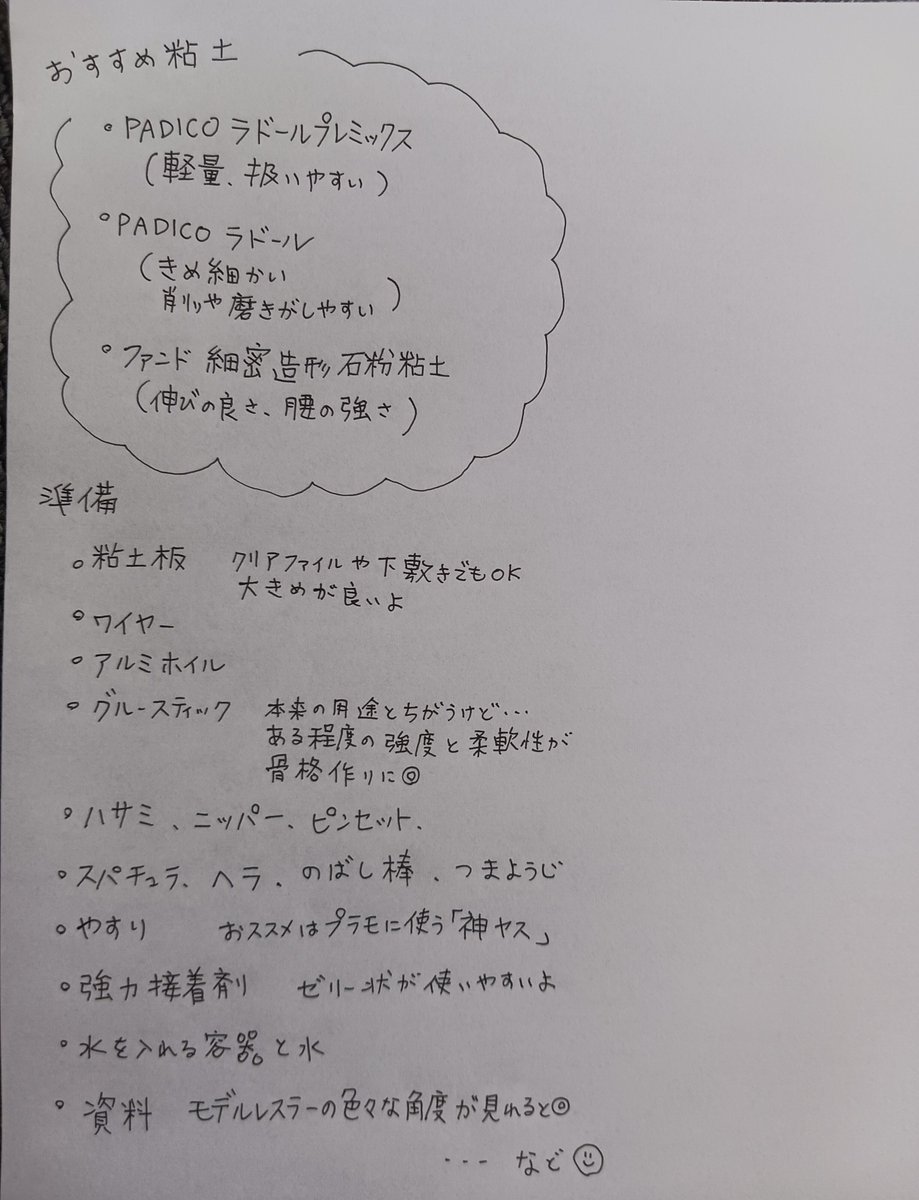 おすすめ粘土
○ PADICO ラドールプレミックス
(軽量、扱いやすい)
○ PADICO ラドール
(きめ細かい
削りや磨きがしやすい)
○ ファンド 細密造形石粉粘土
(伸びの良さ、腰の強さ)
準備
○ 粘土板 クリアファイルや下敷きでもOK
大きめが良いよ
○ ワイヤー
○ アルミホイル
○ グルースティック 本来の用途とちがうけど・・・
ある程度の強度と柔軟性が
骨格作りに◎
○ ハサミ、ニッパー、ピンセット、
○ スパチュラ、ヘラ、のばし棒、つまようじ
○ やすり おススメはプラモに使う「神ヤス」
○ 強力接着剤 ゼリー状が使いやすいよ
○ 水を入れる容器。と水
○ 資料 モデルレスラーの色々な角度が見れると◎
・・・など☺